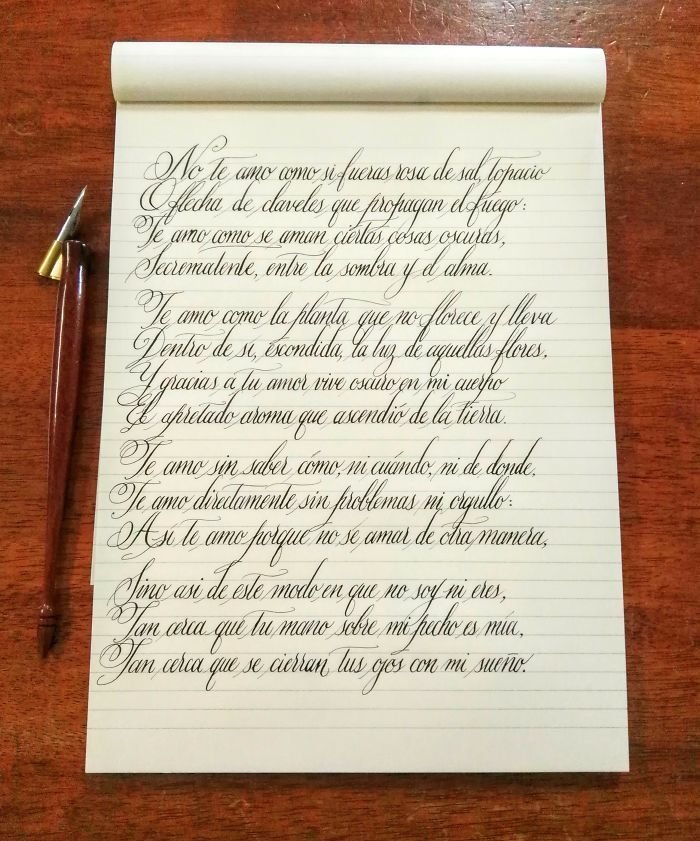 No te amo como si fueras rosa de sal, topacio
O flecha de claveles que propagan el fuego:
Te amo como se aman ciertas cosas oscuras,
Secrematente, entre la sombra y el alma.
Te amo como la planta que no florece y lleva
Dentro de sí, escondida, la luz de aquellas flores,
Y gracias a tu amor vive oscuro en mi cuerpo
El apretado aroma que ascendió de la tierra.
Te amo sin saber cómo, ni cuándo, ni de donde,
Te amo directamente sin problemas ni orgullo:
Así te amo porque no sé amar de otra manera,
Sino asi de este modo en que no soy ni eres,
Tan cerca que tu mano sobre mi pecho es mía,
Tan cerca que se cierran tus ojos con mi sueño.